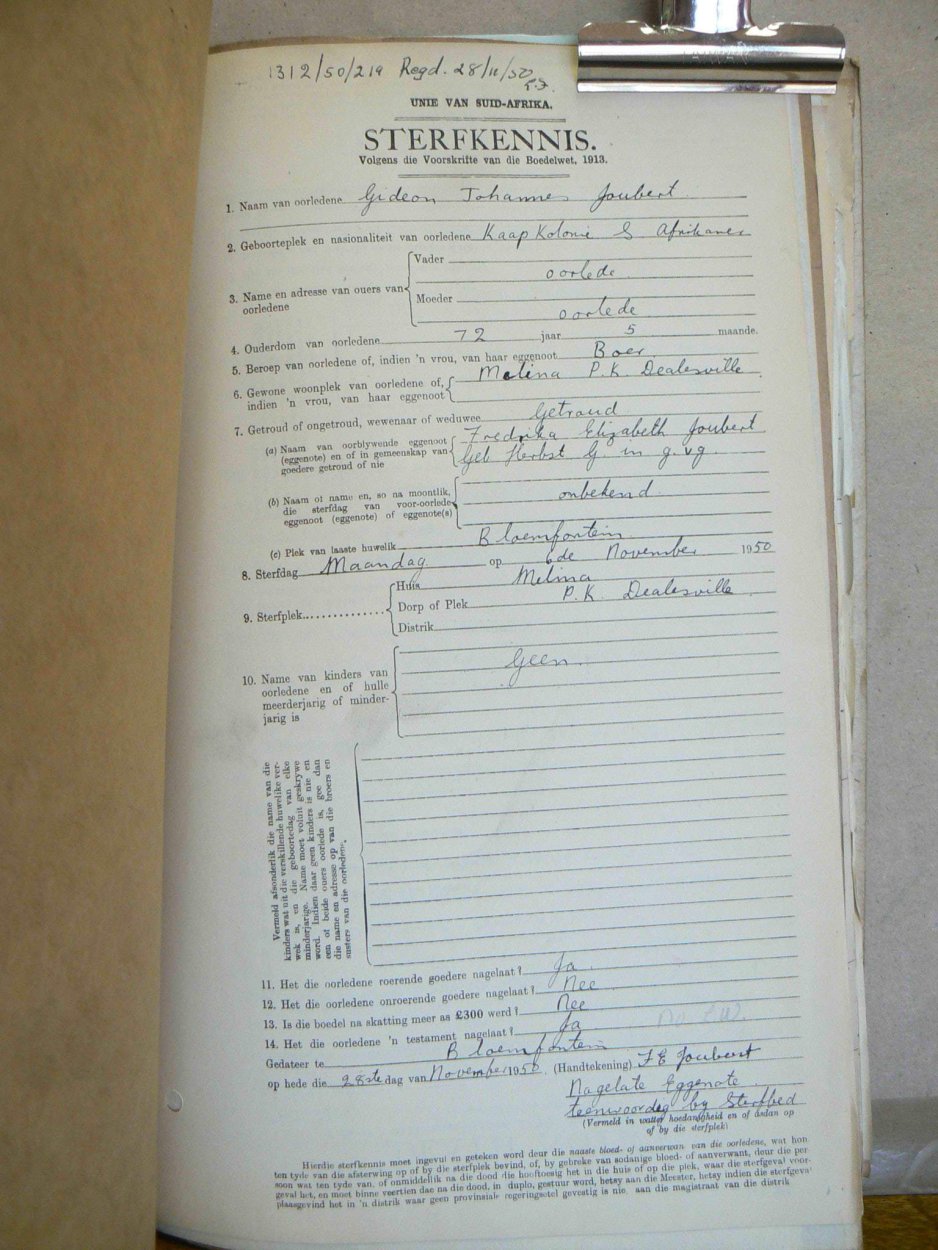 1312/50/219 Regd. 28/11/50
UNIE VAN SUID-AFRIKA.
STERFKENNIS.
Volgens die Voorskrifte van die Boedelwet, 1913.
1. Naam van oorledene Gideon Johannes Joubert
2. Geboorteplek en nasionaliteit van oorledene Kaap Kolonie S Afrikaner
3. Name en adresse van ouers van oorledene
Vader
oorlede
Moeder
oorlede
4. Ouderdom van oorledene 72 jaar 5 maande.
5. Beroep van oorledene of, indien 'n vrou, van haar eggenoot Boer
6. Gewone woonplek van oorledene of, indien 'n vrou, van haar eggenoot
Melina P.K. Dealesville
7. Getroud of ongetroud, wewenaar of weduwee Getroud
(a) Naam van oorblywende eggenoot (eggenote) en of in gemeenskap van goedere getroud of nie
Fredrika Elizabeth Joubert
Geb Herbst G. in g.vg.
(b) Naam of name en, so na moontlik, die sterfdag van voor-oorlede eggenoot (eggenote) of eggenote(s)
onbekend
(c) Plek van laaste huwelik Bloemfontein
8. Sterfdag Maandag op 6de November 1950
9. Sterfplek
Huis Melina
Dorp of Plek P.K. Dealesville
Distrik
10. Name van kinders van oorledene en of hulle meerderjarig of minderjarig is
Geen
Vermeld afsonderlik die name van die
kinders wat uit die verskillende huwelike ver-
wek is, en die geboortedag van elke
minderjarige. Name moet voluit geskrywe
word. Indien daar geen kinders is nie en
een of beide ouers oorlede is, gee dan
die name en adresse op van die broers en
susters van die oorledene.
11. Het die oorledene roerende goedere nagelaat? Ja
12. Het die oorledene onroerende goedere nagelaat? Nee
13. Is die boedel na skatting meer as £300 werd? Nee
14. Het die oorledene 'n testament nagelaat? Ja
Gedateer te Bloemfontein
op hede die 28ste dag van November 1950. (Handtekening) F E Joubert
Nagelate Eggenote
teenwoordig by Sterfbed
(Vermeld in watter hoedanigheid en of dadan op
of by die sterfplek)
Hierdie sterfkennis moet ingevul en geteken word deur die naaste bloed- of aanverwan van die oorledene, wat hom
ten tyde van die afsterwing op of by die sterfplek bevind, of, by gebreke van sodanige bloed- of aanverwant, deur die per-
soon wat ten tyde van, of onmiddellik na die dood die hooftoesig het in die huis of op die plek, waar die sterfgeval voor-
geval het, en moet binne veertien dae na die dood, in duplo, gestuur word, hetsy aan die Meester, hetsy indien die sterfgeva
plaasgevind het in 'n distrik waar geen provinsiale regeringsetel gevestig is nie, aan die magistraat van die distrik